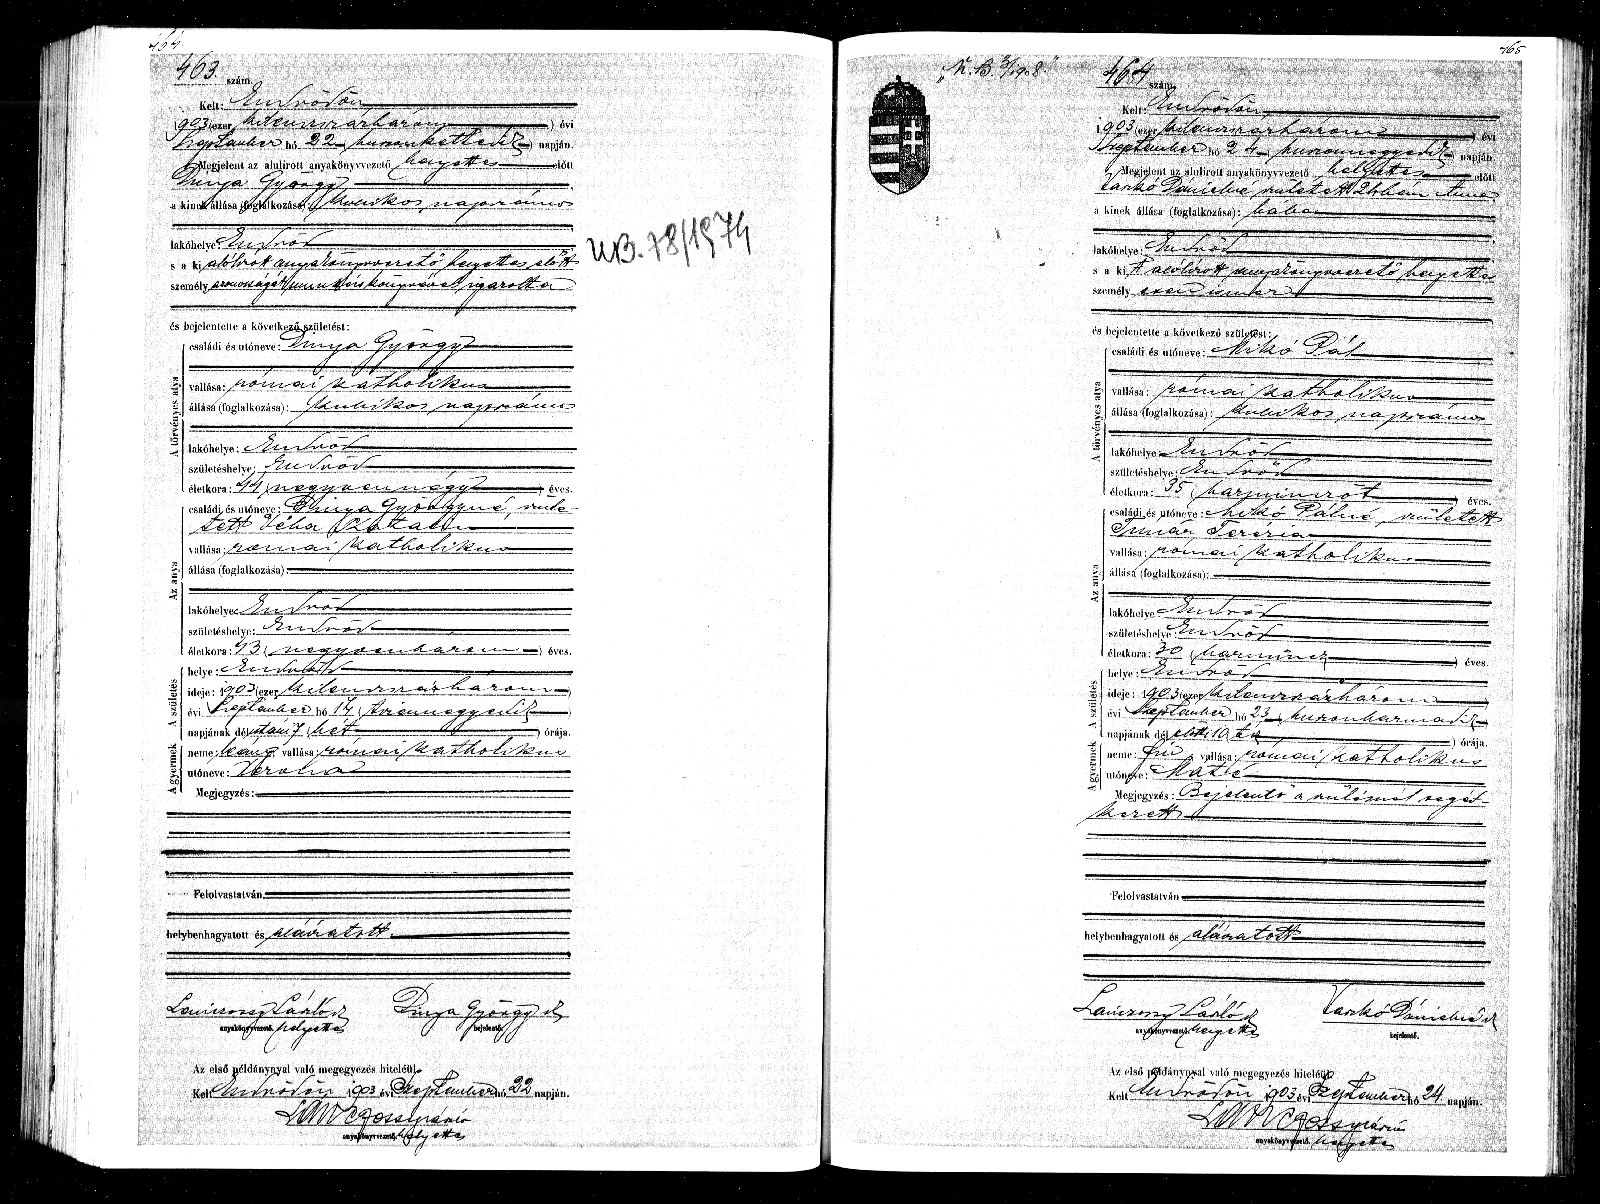 464
463 szám.
Kelt: Endrődön
1903 (ezer kilenczszázhárom) évi
Szeptember hó 22 (huszonkettedik) napján.
Megjelent az alulirott anyakönyvvezető helyettes előtt
Dinya György
a kinek állása (foglalkozása): kubikos napszámos
lakóhelye: Endrőd
s a ki alólirott anyakönyvvezető helyettes előtt
személyazonosságát munkás könyvével igazolta
és bejelentette a következő születést:
A törvényes atya
családi és utóneve: Dinya György
vallása: római katholikus
állása (foglalkozása): kubikos napszámos
lakóhelye: Endrőd
születéshelye: Endrőd
életkora: 44 (negyvennégy) éves.
Az anya
családi és utóneve: Dinya Györgyné, szüle-
tett Véha Katalin
vallása: római katholikus
állása (foglalkozása):
lakóhelye: Endrőd
születéshelye: Endrőd
életkora: 43 (negyvenhárom) éves.
A születés
helye: Endrőd
ideje: 1903 (ezer kilenczszázhárom)
évi Szeptember hó 14 (tizennegyedik)
napjának délután 7 (hét) órája.
A gyermek
neme: leány vallása: római katholikus
utóneve: Verona
Megjegyzés:
Felolvastatván
helybenhagyatott és aláiratott
László Dinya György
anyakönyvvezető helyettes bejelentő.
Az első példánynyal való megegyezés hiteléül.
Kelt Endrődön 1903 évi Szeptember hó 22 napján.
anyakönyvvezető helyettes
UB. 78/1974
465
464 szám.
Kelt: Endrődön
1903 (ezer kilenczszázhárom) évi
Szeptember hó 24 (huszonnegyedik) napján.
Megjelent az alulirott anyakönyvvezető helyettes előtt
Varkó Dánielné született Anna
a kinek állása (foglalkozása): bába
lakóhelye: Endrőd
s a kit alólirott anyakönyvvezető helyettes
személyesen ismer
és bejelentette a következő születést:
A törvényes atya
családi és utóneve: Mikó Pál
vallása: római katholikus
állása (foglalkozása): kubikos napszámos
lakóhelye: Endrőd
születéshelye: Endrőd
életkora: 35 (harminczöt) éves.
Az anya
családi és utóneve: Mikó Pálné, született
Timár Terézia
vallása: római katholikus
állása (foglalkozása):
lakóhelye: Endrőd
születéshelye: Endrőd
életkora: 30 (harmincz) éves.
A születés
helye: Endrőd
ideje: 1903 (ezer kilenczszázhárom)
évi Szeptember hó 23 (huszonharmadik)
napjának délelőtt 10 (tíz) órája.
A gyermek
neme: fiú vallása: római katholikus
utóneve: Máté
Megjegyzés: Bejelentő a szülésnél segéd-
kezett
Felolvastatván
helybenhagyatott és aláiratott
László Varkó Dánielné
anyakönyvvezető helyettes bejelentő.
Az első példánynyal való megegyezés hiteléül.
Kelt Endrődön 1903 évi Szeptember hó 24 napján.
anyakönyvvezető helyettes